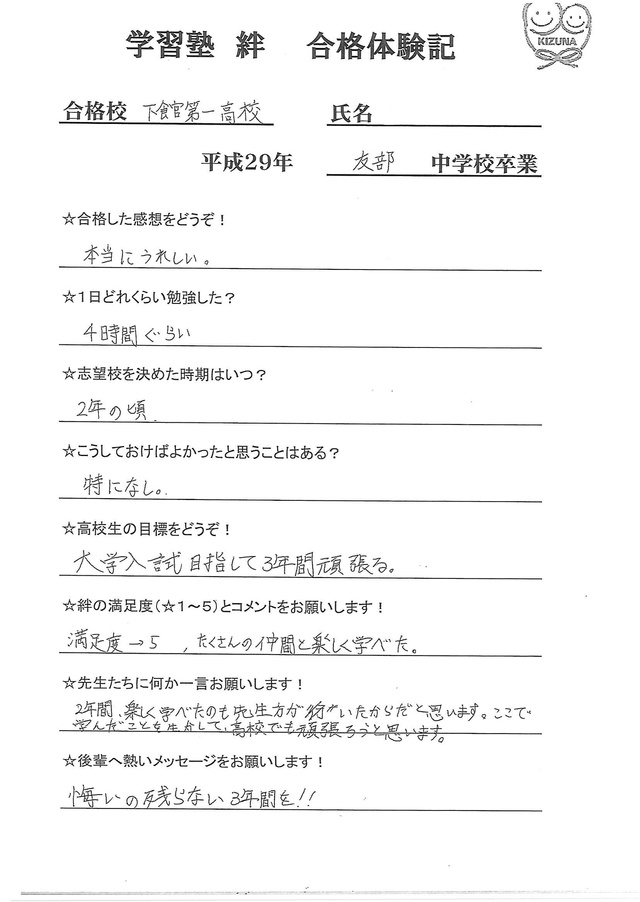 学習塾 絆 合格体験記
KIZUNA
合格校 下館第一高校 氏名
平成29年 友部 中学校卒業
☆合格した感想をどうぞ！
本当にうれしい。
☆１日どれくらい勉強した？
4時間ぐらい
☆志望校を決めた時期はいつ？
2年の頃.
☆こうしておけばよかったと思うことはある？
特になし。
☆高校生の目標をどうぞ！
大学入試目指して3年間頑張る。
☆絆の満足度（☆１～５）とコメントをお願いします！
満足度→5 , たくさんの仲間と楽しく学べた。
☆先生たちに何か一言お願いします！
2年間、楽しく学べたのも先生方がいたからだと思います。ここで
学んだことを生かして、高校でも頑張ろうと思います。
☆後輩へ熱いメッセージをお願いします！
悔いの残らない3年間を!!